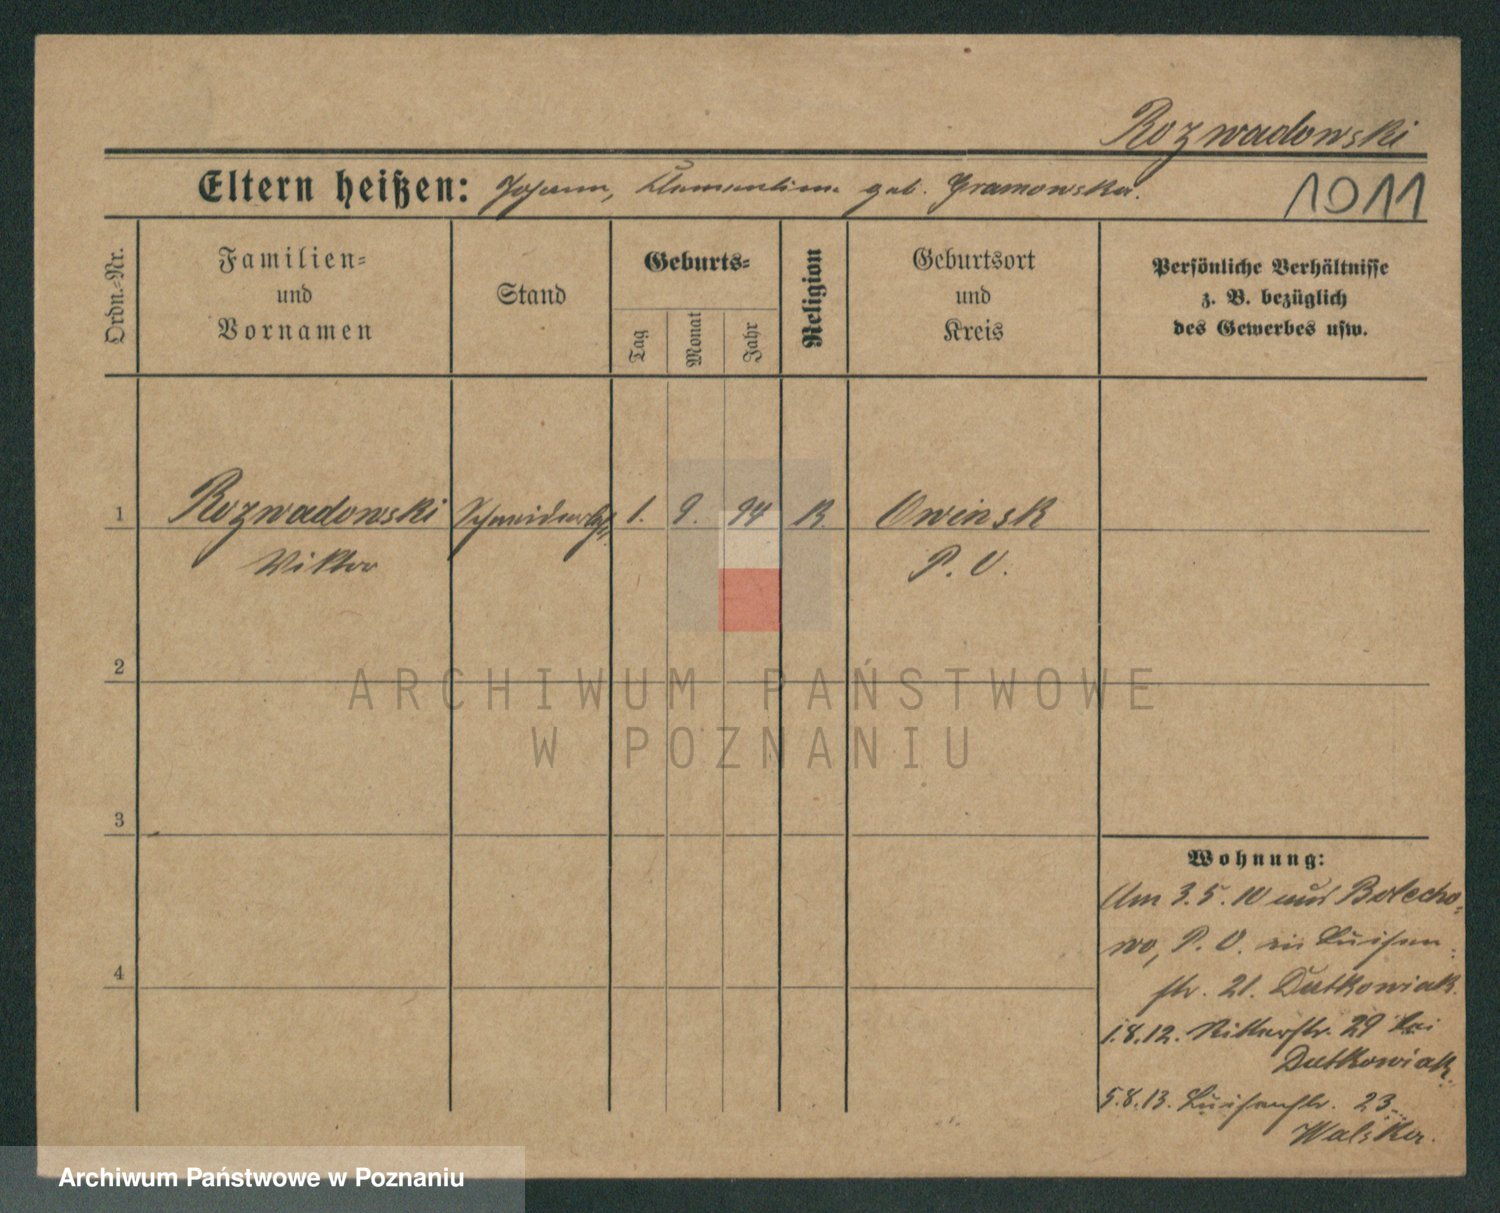 Rozwadowski
Eltern heißen: Johann, Klementine geb. Gramowska.
1011
Ordn.=Nr.
Familien=
und
Vornamen
Stand
Geburts=
Tag
Monat
Jahr
Religion
Geburtsort
und
Kreis
Persönliche Verhältnisse
z. B. bezüglich
des Gewerbes usw.
1 Rozwadowski Schneiderlehrl. 1. 9. 94 K. Owinsk
Wiktor P. O.
2
ARCHIWUM PAŃSTWOWE
W POZNANIU
3
Wohnung:
Am 3.5.10 aus Bolecho=
wo, P. O. in Luisen=
str. 21. Dutkowiak.
4
1.8.12. Ritterstr. 29 bei
Dutkowiak.
5.8.13. Luisenstr. 23
Walska.
Archiwum Państwowe w Poznaniu